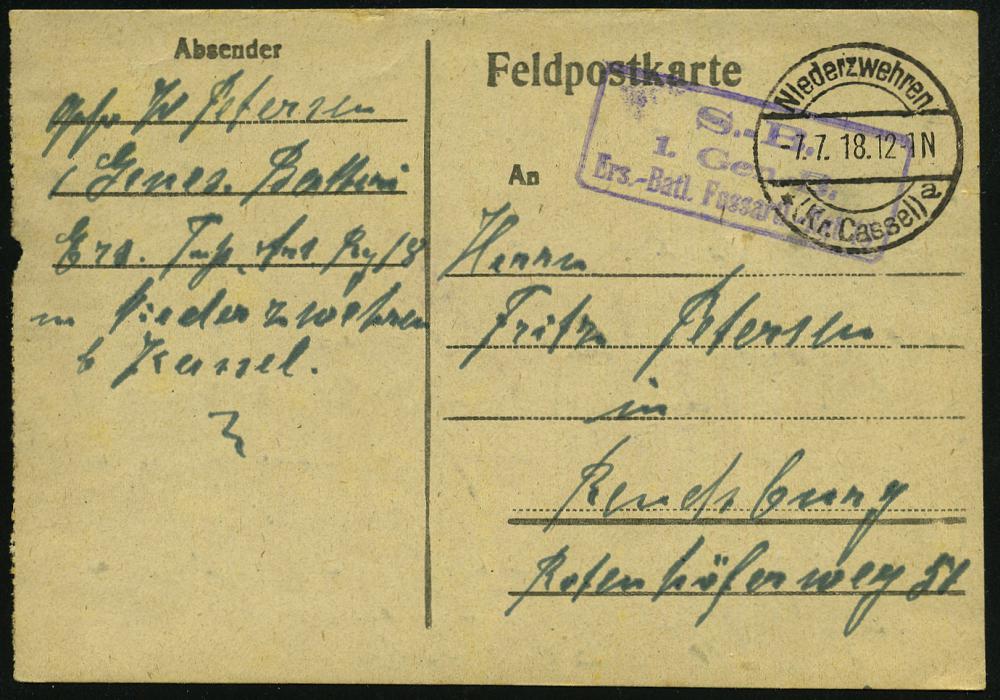 Absender
Petersen
1 Genes. Battri
Ers.
in Niederzwehren
b Kassel.
Feldpostkarte
An
S.-B.
1. Gen.-B.
Ers.-Batl. Fussart.
Niederzwehren
7.7. 18.12-1N
* (Kr. Cassel) a
Herrn
Fritz Petersen
in
Rendsburg
Rotenhöferweg 51